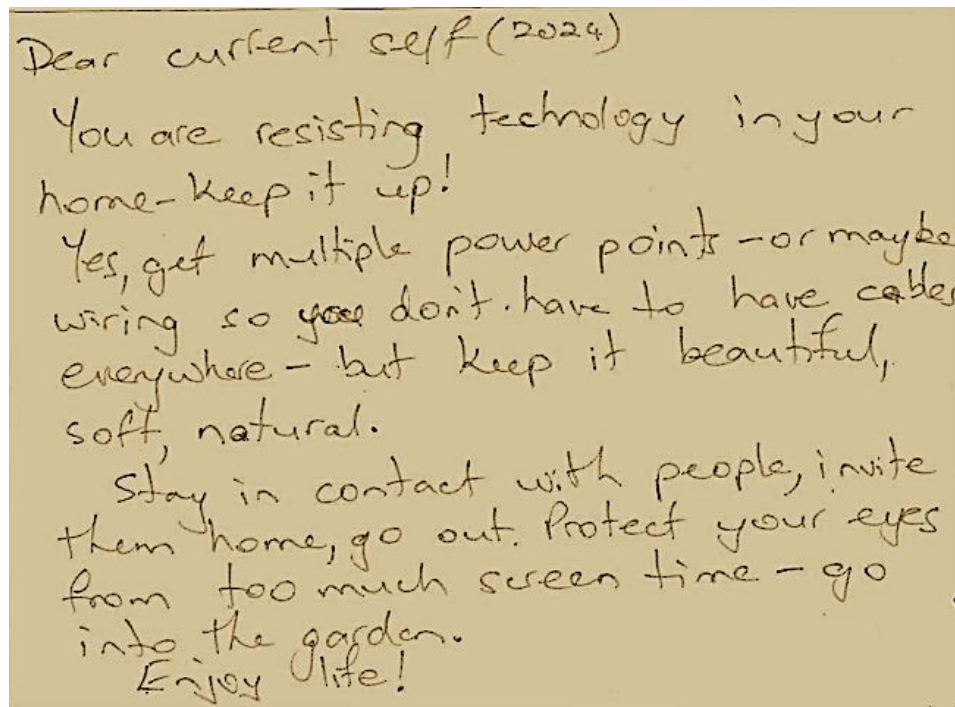 Dear current self (2024)
You are resisting technology in your
home - keep it up!
Yes, get multiple power points - or maybe
wiring so you don't have to have cables
everywhere - but keep it beautiful,
soft, natural.
Stay in contact with people, invite
them home, go out. Protect your eyes
from too much screen time - go
into the garden.
Enjoy life!